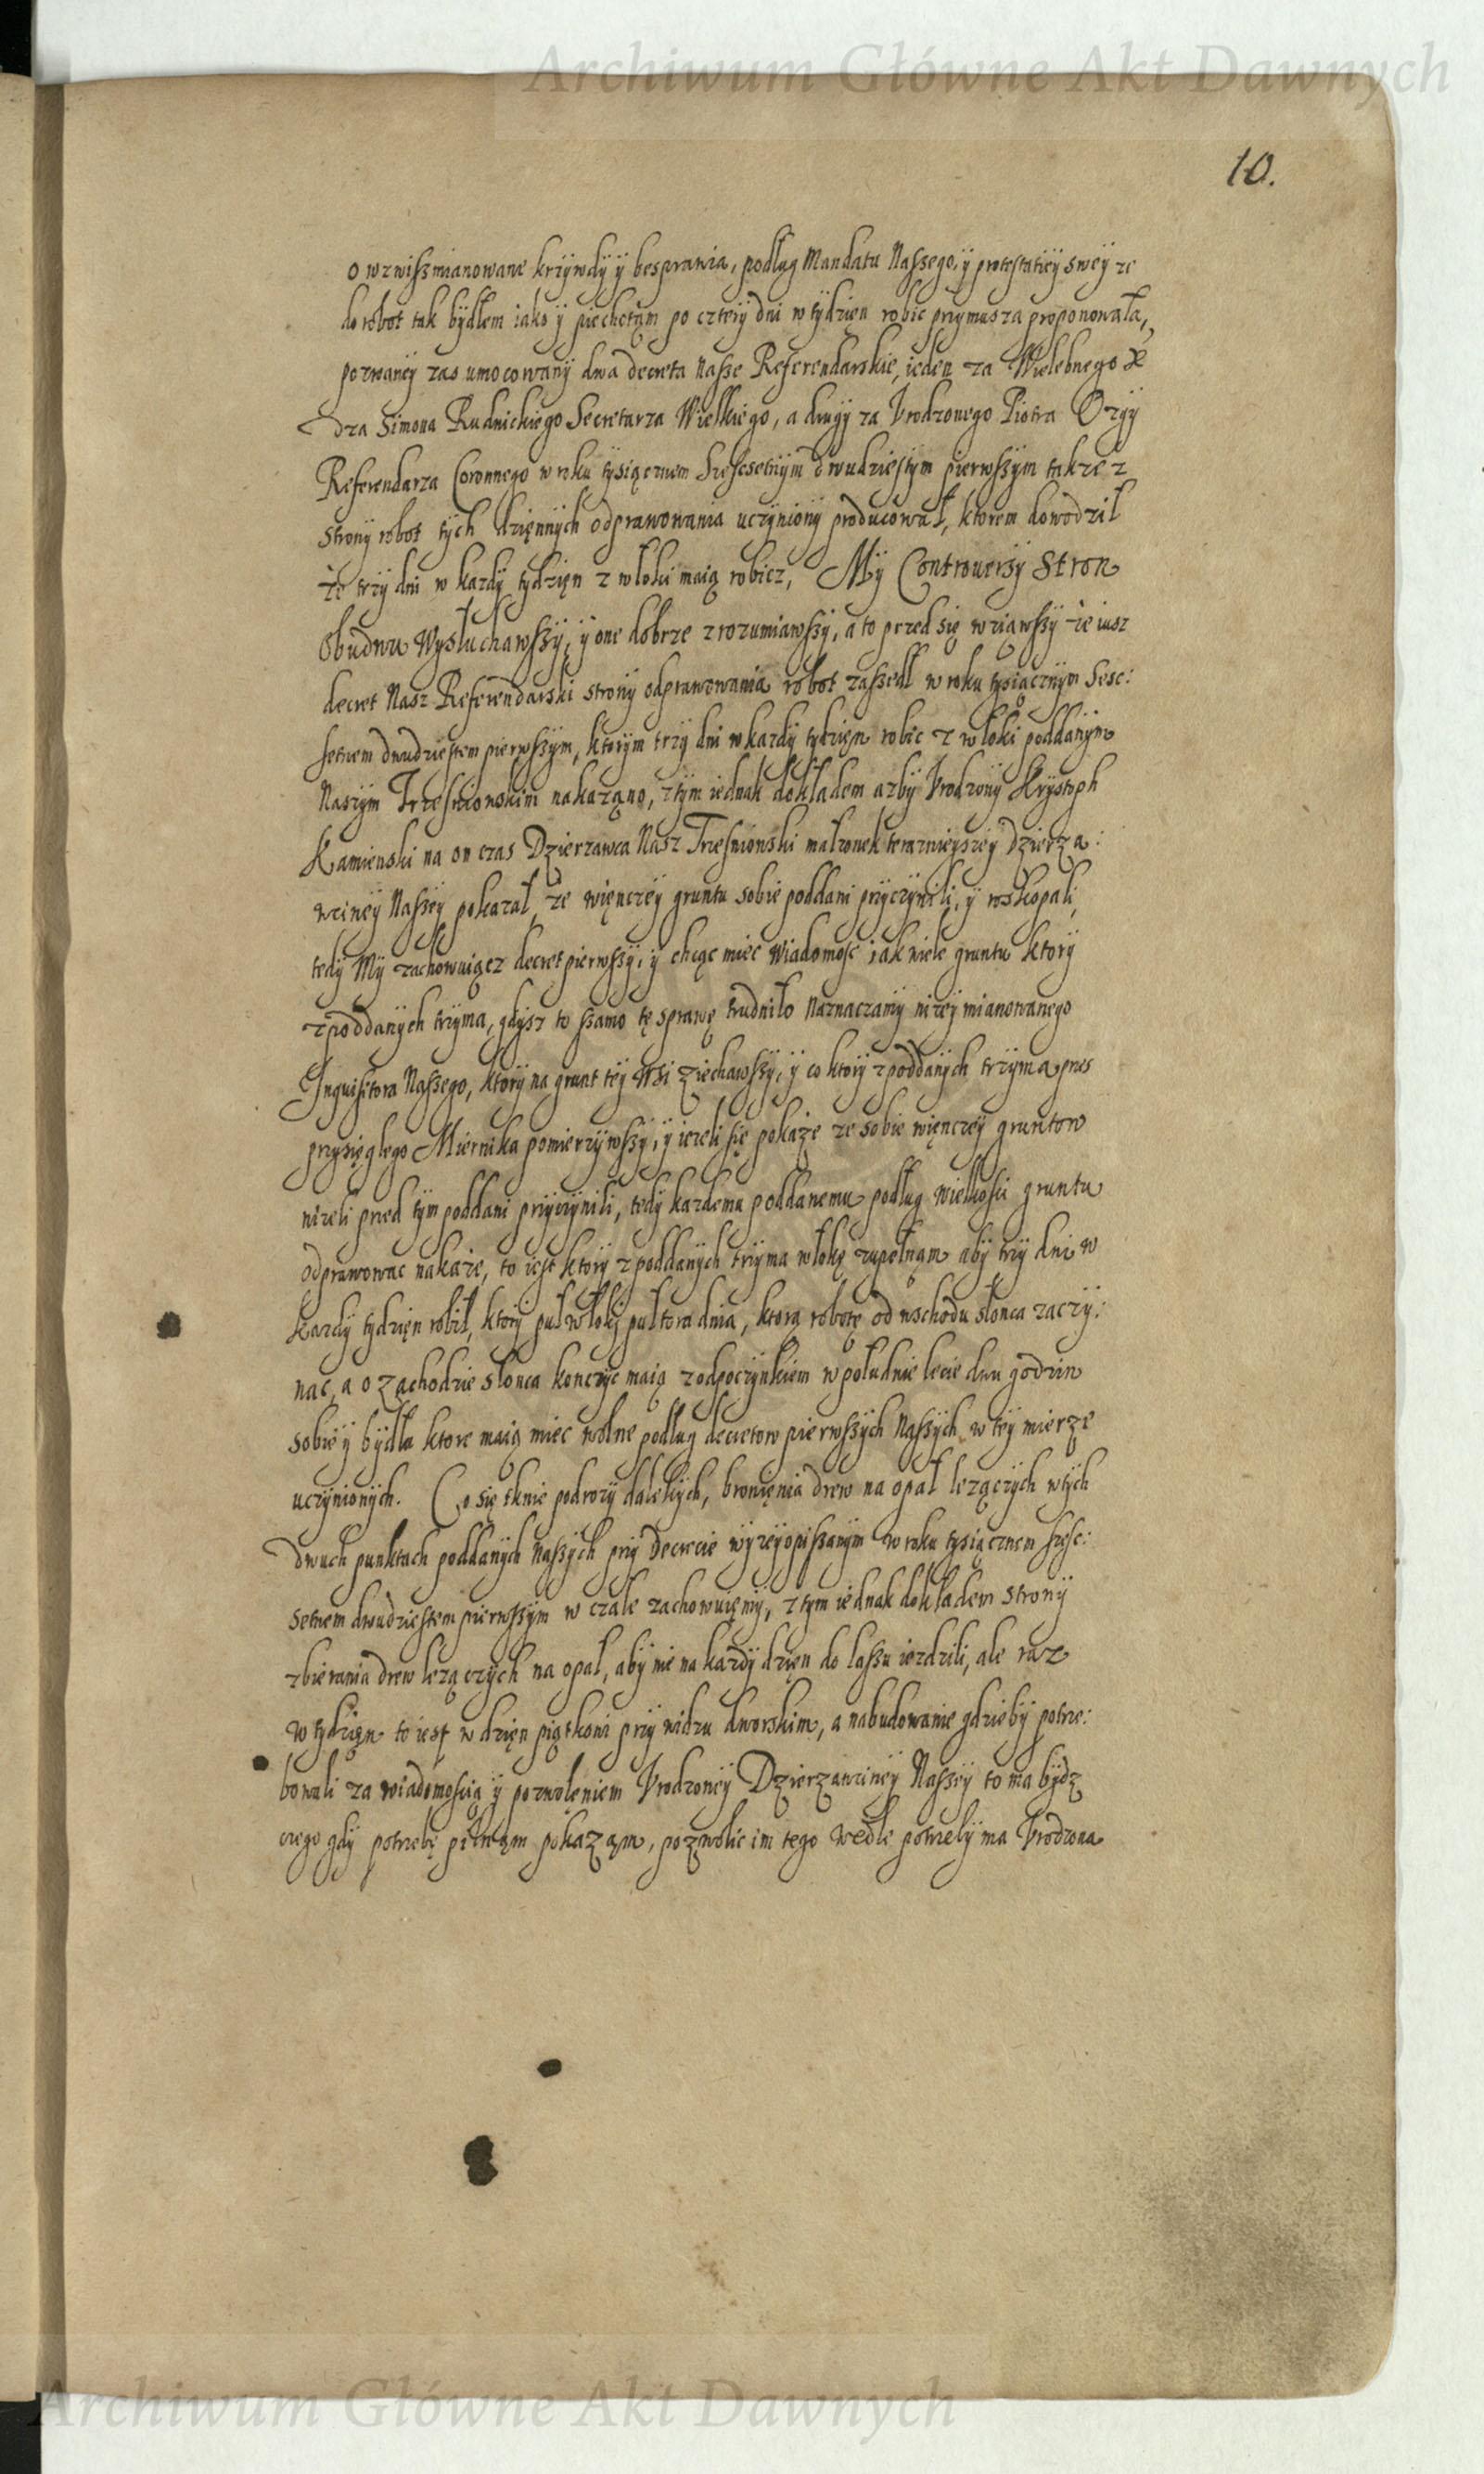 Archiwum Główne Akt Dawnych
10.
o wzwiszmianowane krzÿwdÿ ÿ besprawia, podług Mandatu Naszego, ÿ protestatieÿ sweÿ ze
do robot tak bÿdłem iako ÿ piechotąm po czterÿ dni w tÿdzięn robic prÿmusza proponowała,
pozwaneÿ zas umocowanÿ dwa decreta Nasze Referendarskie, ieden za Wielebnego X
dza Simona Rudnickiego Secretarza Wielkiego, a drugÿ za Vrodzonego Piotra Ozgÿ
Referendarza Coronnego w roku tÿsiącznem Szescsetnÿm dwudziestÿm pierwszÿm takze z
stronÿ robot tÿch dzięnnÿch odprawowania uczÿnionÿ producował, ktorem dowodził
ze trzÿ dni w kazdÿ tÿdzięn z włoki maią robicz, Mÿ Controversÿ Stron
Obudwu Wÿsłuchawszÿ, ÿ one dobrze zrozumiawszÿ, a to przed się wziąwszÿ ze iusz
decret Nasz Referendarski stronÿ odprawowania robot zaszedł w roku tÿsiącznÿm Sesc:
setnem dwudziestem pierwszÿm, ktorÿm trzÿ dni w kazdÿ tÿdzięn robic z włoki poddanÿm
Naszÿm Trzesnionskim nakazano, z tÿm iednak dokładem azbÿ Vrodzonÿ Krÿstoph
Kamienski na on czas Dzierzawca Nasz Trzesnionski małzonek terazniejszeÿ Dzierza:
wczineÿ Naszeÿ pokazał, ze więnczeÿ gruntu sobie poddani prÿczÿnili, ÿ wskopali,
tedÿ Mÿ zachowuiącz decret pierwszÿ, ÿ chcąc miec wiadomosc iak wiele gruntu ktorÿ
z poddanÿch trzÿma, gdÿsz to szamo tę sprawę trudniło Naznaczamÿ nizeÿ mianowanego
Inquisitora Naszego, ktorÿ na grunt teÿ Wsi ziechawszÿ, ÿ co ktorÿ z poddanÿch trzÿma pres
prÿsięgłego Miernika pomierzÿwszÿ, ÿ iezeli się pokaze ze sobie więnczeÿ gruntow
nizeli przed tÿm poddani prÿczÿnili, tedÿ kazdemu poddanemu podług wielkosci gruntu
odprawowac nakaze, to iest ktorÿ z poddanÿch trzÿma włokę zupełnąm abÿ trzÿ dni w
kazdÿ tÿdzięn robił, ktorÿ puł włoki pułtora dnia, ktorą robotę od wschodu słonca zaczÿ:
nac, a o zachodzie słonca konczÿc maią z odpoczÿnkiem w południe lecie dwu godzin
sobie ÿ bÿdłu ktore maią miec wolne podług decretow pierwszÿch Naszÿch w teÿ mierze
uczÿnionÿch. Co się tknie podrozÿ dalekÿch, bronięnia drew na opał lezączÿch w tÿch
dwuch punktach poddanÿch Naszÿch prÿ Decrecie wÿzeÿopiszanÿm w roku tÿsiącznem szesc:
setnem dwudziestem pierwszÿm w czale zachowuięmÿ, z tÿm iednak dokładem stronÿ
zbierania drew lezączÿch na opał, abÿ nie na kazdÿ dzięn do lassu iezdzili, ale raz
w tÿdzięn to iest w dzięn piątkoni prÿ widzu dworskim, a na budowanie gdziebÿ potrze:
bowali za wiadomoscią ÿ pozwolęniem Vrodzoneÿ Dzierzawcineÿ Naszeÿ to ma bÿdz
czego gdÿ potrzebę pilnąm pokaząm, pozwolic im tego wedle potrzebÿ ma Vrodzona
Archiwum Główne Akt Dawnych